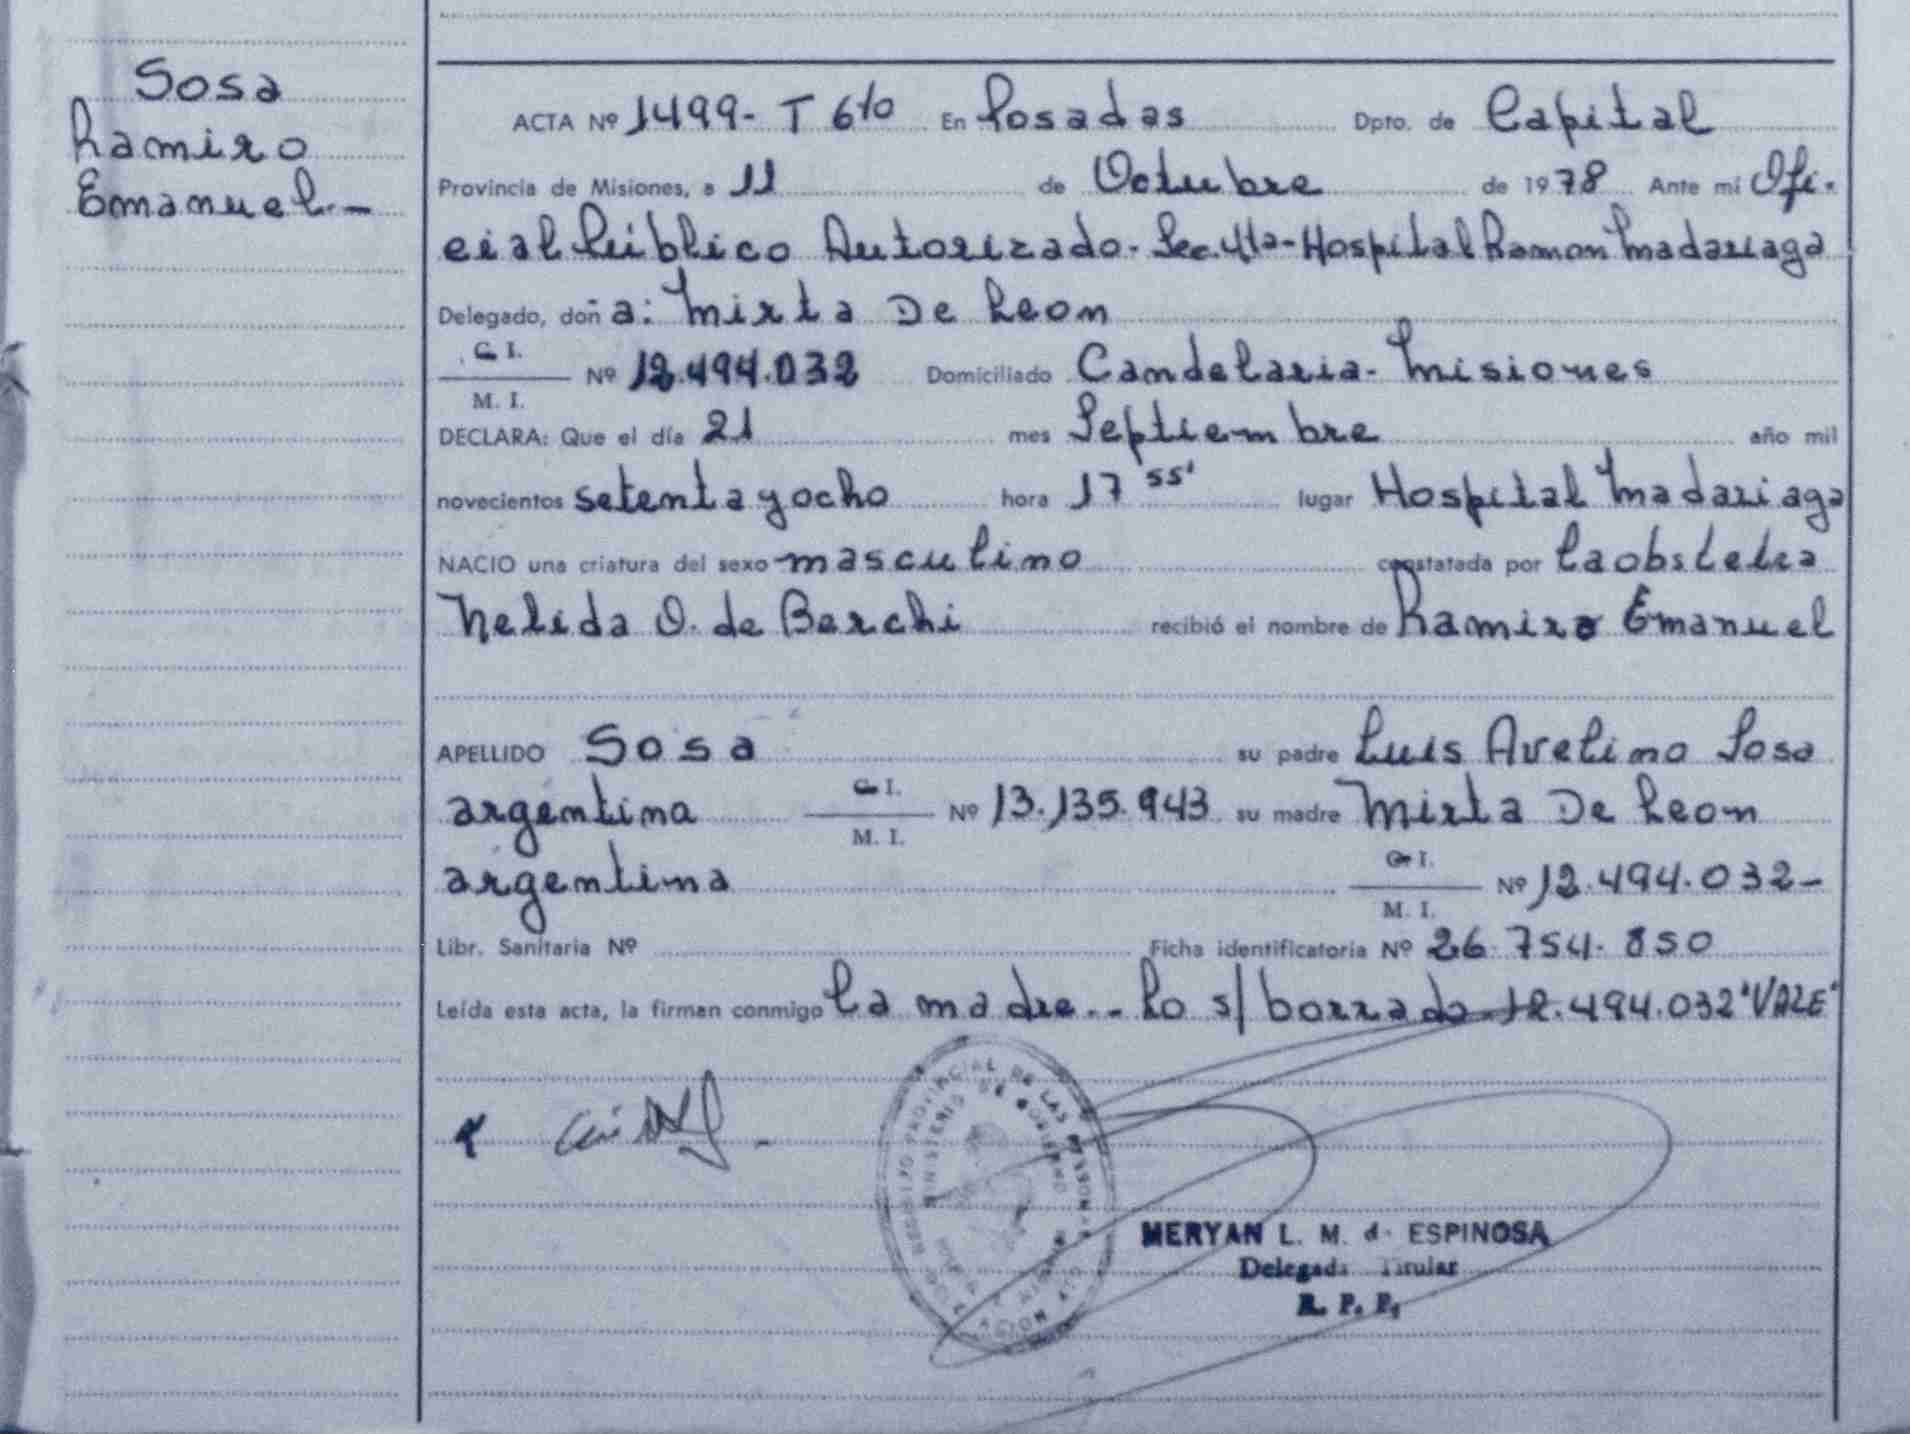 Sosa
Ramiro
Emanuel.-
ACTA Nº 1499- T 6to En Posadas Dpto. de Capital
Provincia de Misiones, a 11 de Octubre de 1978 Ante mí Ofi-
cial Público Autorizado- Sec. 4ta- Hospital Ramon Madariaga
Delegado, doña: Mirta De Leon
C. I.
M. I. Nº 12.494.032 Domiciliado Candelaria- Misiones
DECLARA: Que el día 21 mes Septiembre año mil
novecientos setenta y ocho hora 17 55' lugar Hospital Madariaga
NACIO una criatura del sexo masculino constatada por la obstetra
Nelida O. de Berchi recibió el nombre de Ramiro Emanuel
APELLIDO Sosa su padre Luis Avelino Sosa
argentina C. I. M. I. Nº 13.135.943 su madre Mirta De Leon
argentina C. I. M. I. Nº 12.494.032-
Libr. Sanitaria Nº Ficha identificatoria Nº 26.754.850
Leída esta acta, la firman conmigo la madre.-- Lo s/ borrado 12.494.032 "VALE"
REGISTRO PROVINCIAL DE LAS PERSONAS
MINISTERIO DE GOBIERNO
MERYAN L. M. d. ESPINOSA
Delegada Titular
R. P. P.